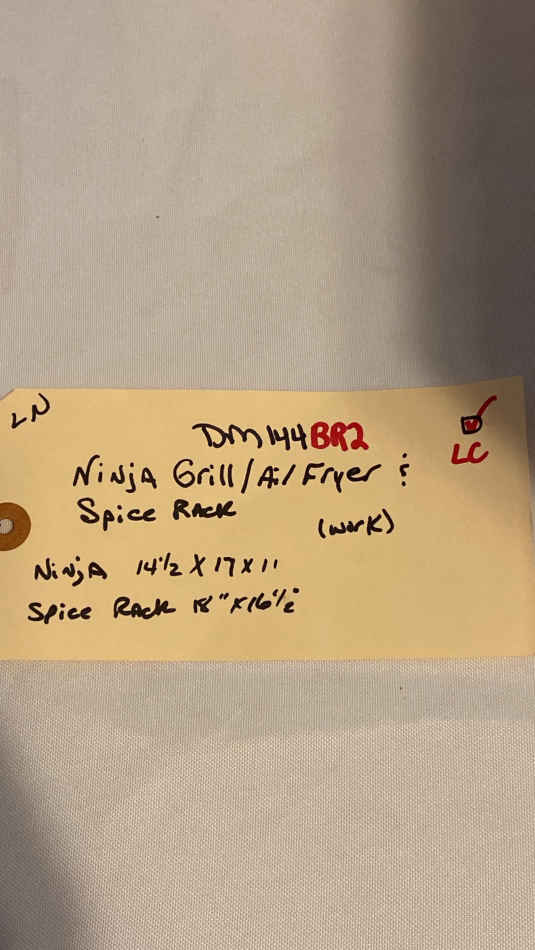 LN
DM144BR2
LC
Ninja Grill/Air Fryer &
Spice Rack
(work)
Ninja 14 1/2 X 17 X 11
Spice Rack 18" X 16 1/2"